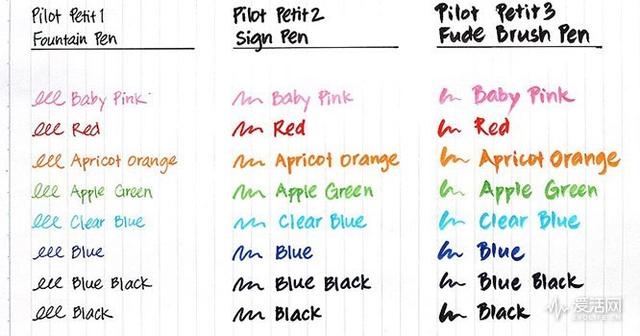 Pilot Petit1
Fountain Pen
Baby Pink
Red
Apricot Orange
Apple Green
Clear Blue
Blue
Blue Black
Black
Pilot Petit2
Sign Pen
Baby Pink
Red
Apricot Orange
Apple Green
Clear Blue
Blue
Blue Black
Black
Pilot Petit3
Fude Brush Pen
Baby Pink
Red
Apricot Orange
Apple Green
Clear Blue
Blue
Blue Black
Black
爱活网